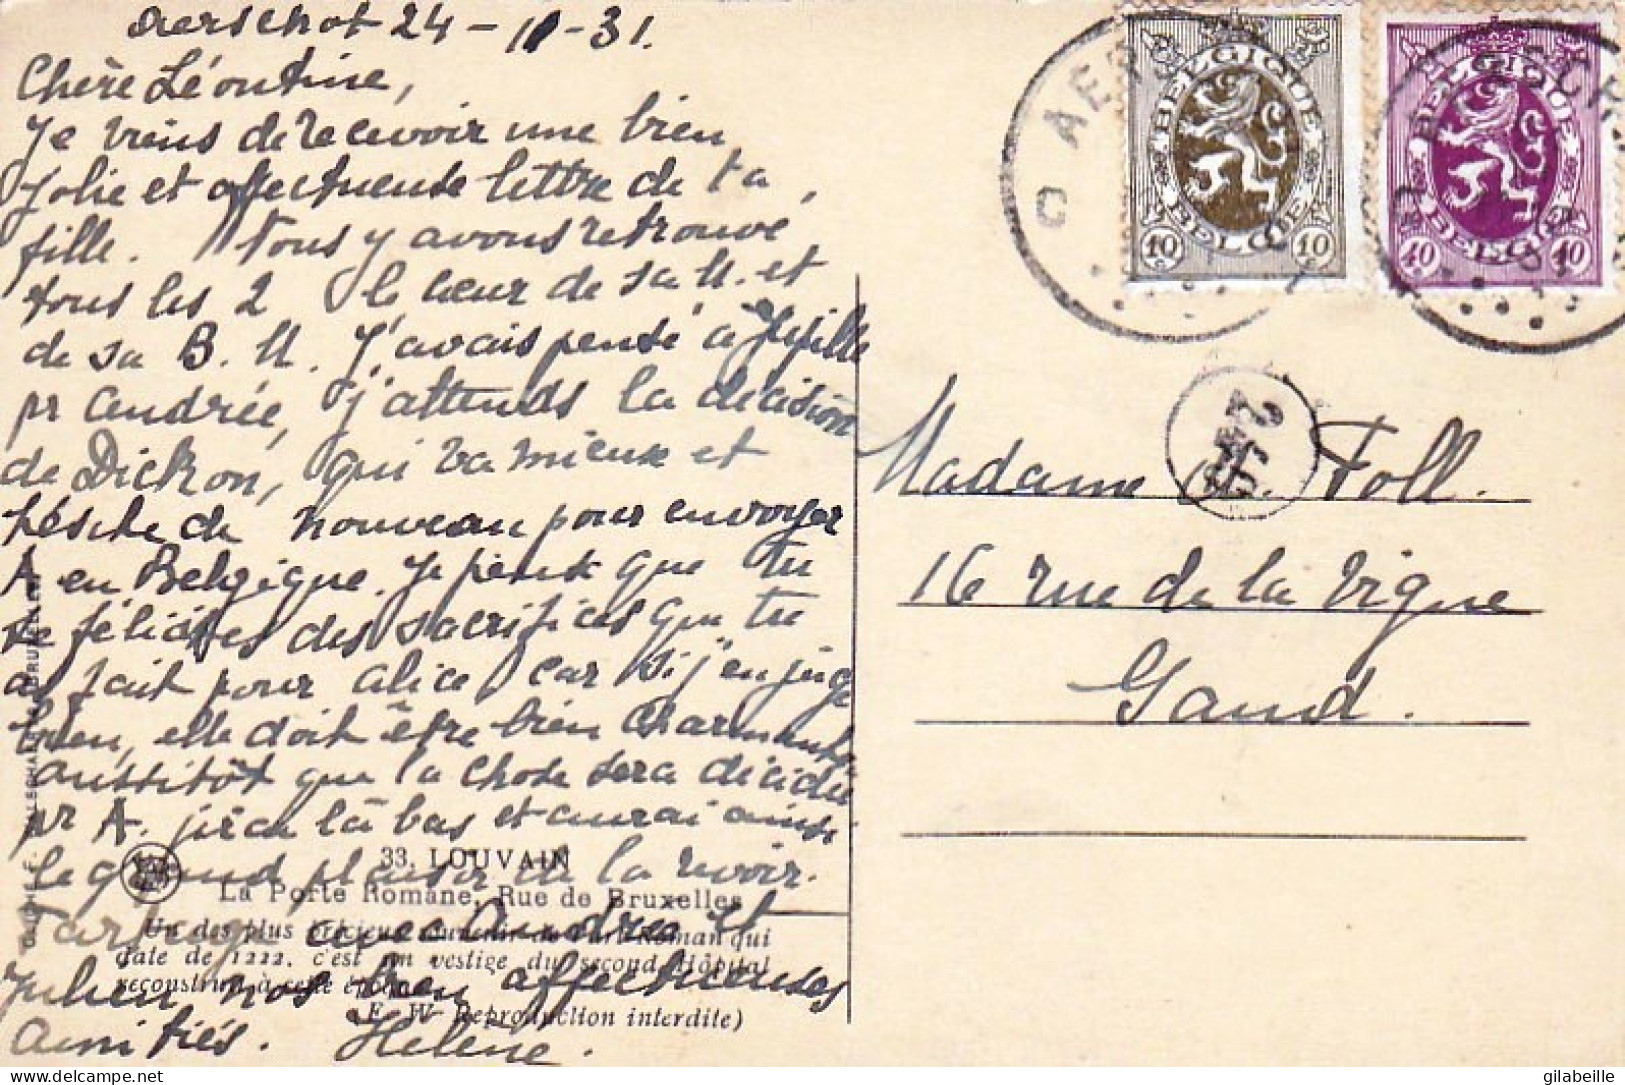 Aerschot 24-11-31.
Chère Léontine,
Je viens de recevoir une bien
jolie et affectueuse lettre de ta
fille. Nous y avons retrouvé
tous les 2 le cœur de sa M. et
de sa B. M. J'avais pensé à
pr Andrée, j'attends la décision
de Dickson, qui va mieux et
hésite de nouveau pour envoyer
A en Belgique. Je pense que tu
te félicites des sacrifices que tu
as fait pour Alice car si j'en juge
bien, elle doit être bien charmante
aussitôt que la chose sera décidée
pr A. j'irai là bas et aurai ainsi
le grand plaisir de la revoir.
Partage avec Andrée et
Julien nos bien affectueuses
amitiés. Helene.
33. LOUVAIN
La Porte Romane, Rue de Bruxelles
Un des plus précieux souvenir de l'art Roman qui
date de 1222. c'est un vestige du second Hôpital
reconstruit à cette époque
(E. W. Reproduction interdite)
BELGIQUE
BELGIË
10 10
BELGIQUE
BELGIË
40 40
AER
Madame Foll.
16 rue de la Vigne
Gand.
gilabeille